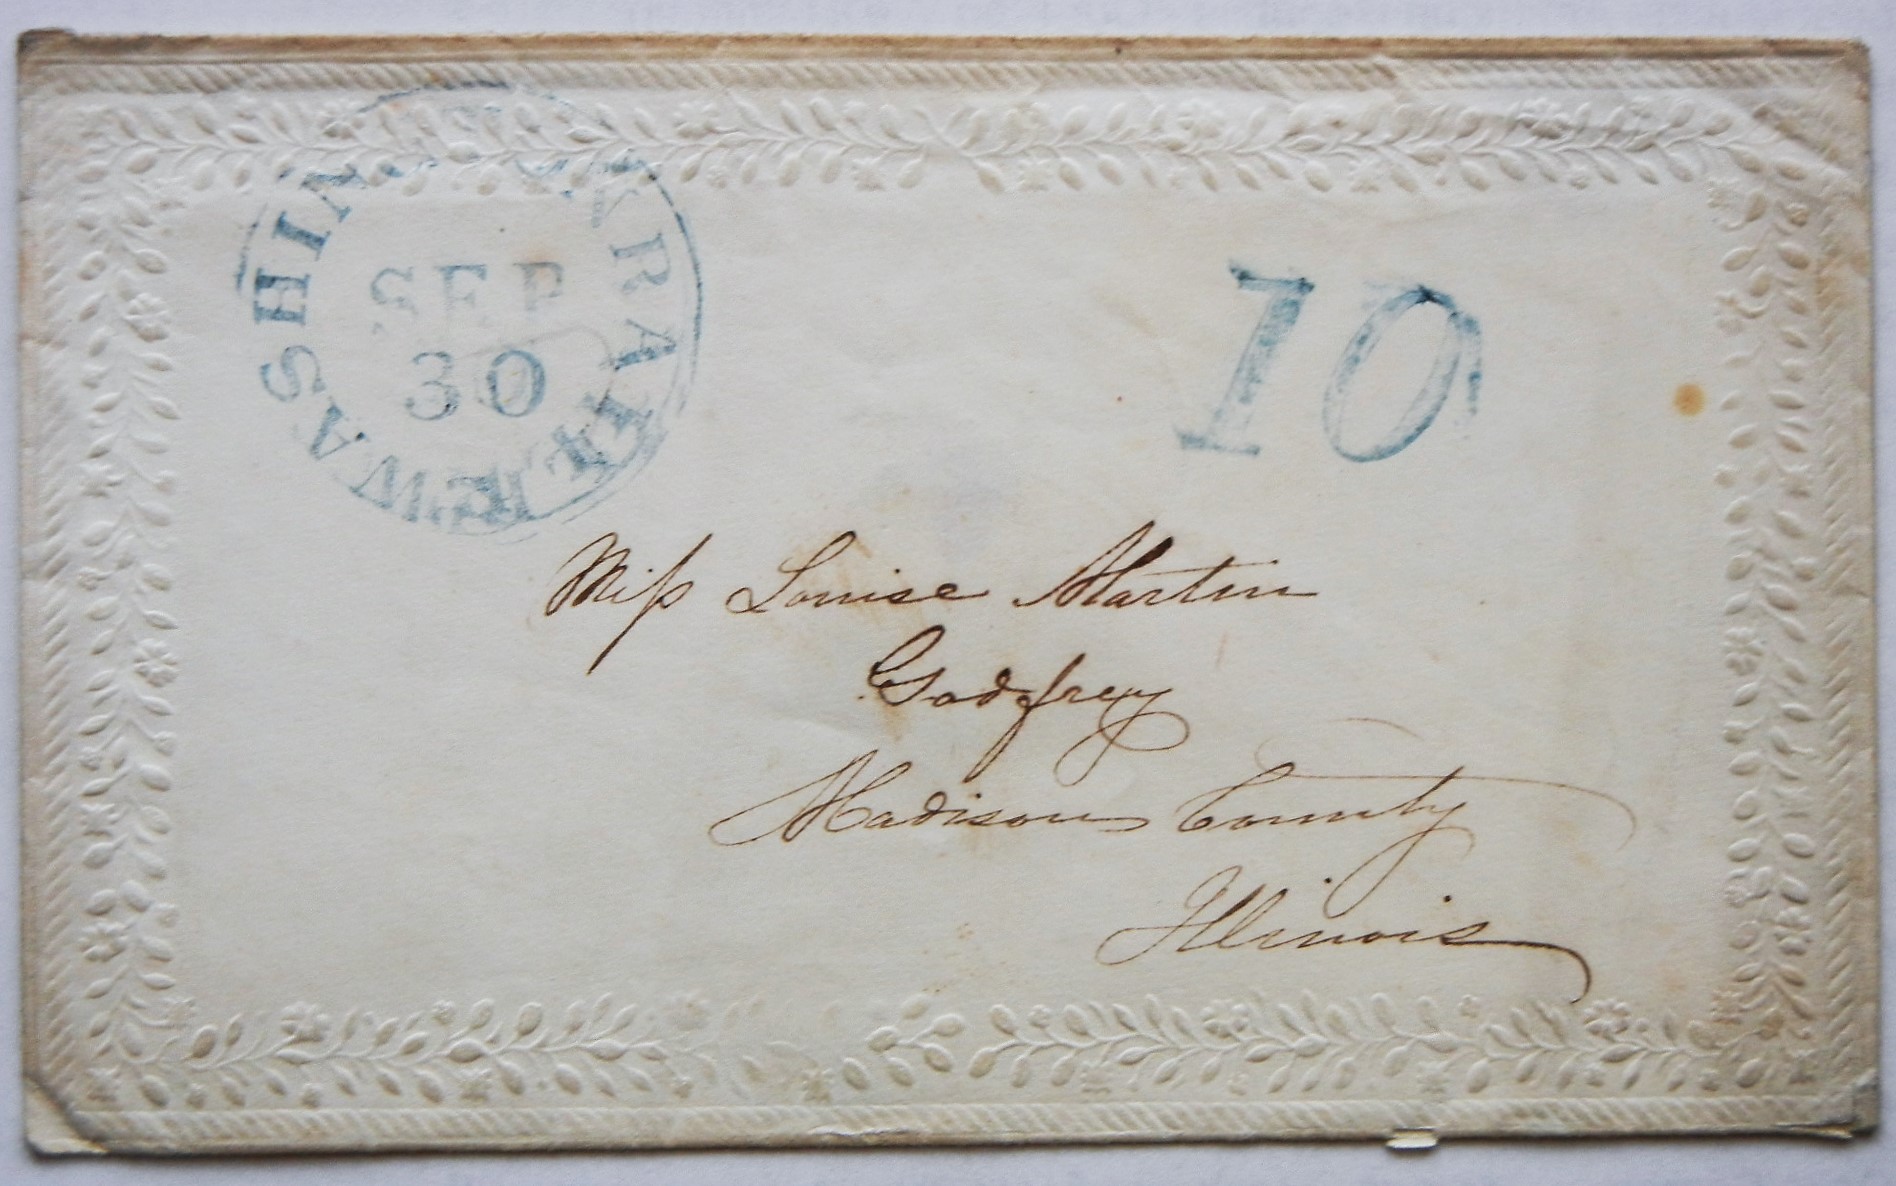 WASHIN RAIL
SEP
30
10
Miss Louise Martin
Godfrey
Madison County
Illinois